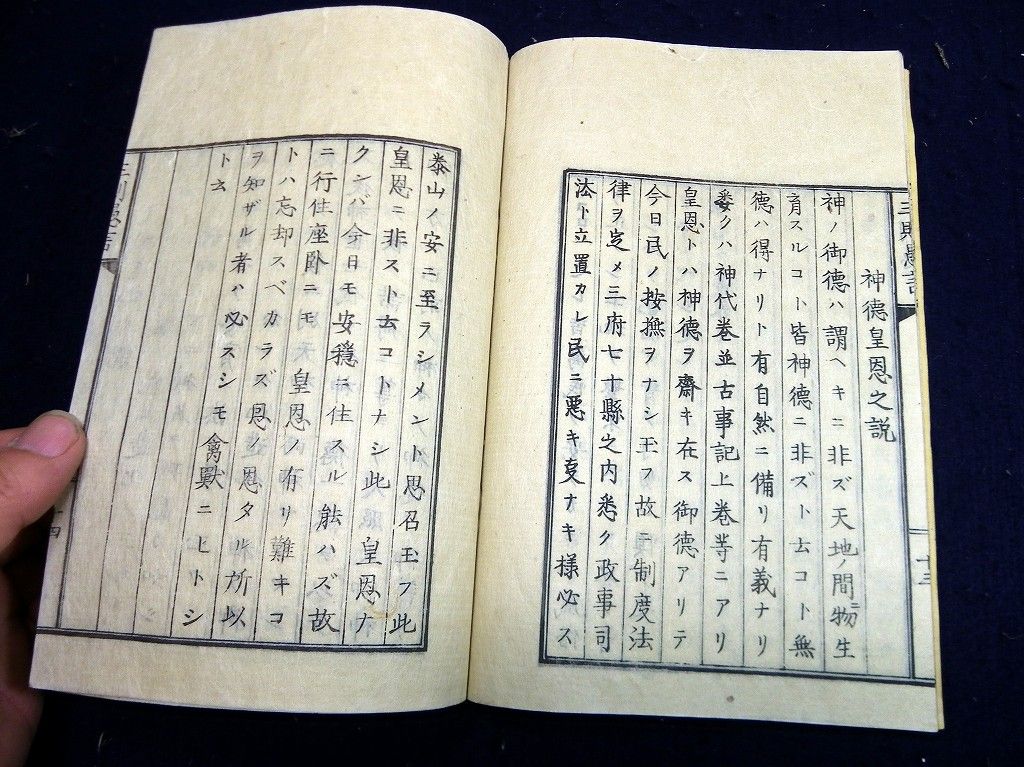 神德皇恩之説
神ノ御德ハ謂ヘキニ非ズ天地ノ間物ニ生
育スルコト皆神德ニ非ズト云コト無
德ハ得ナリト有自然ニ備リ有義ナリ
委クハ神代巻並古事記上巻等ニアリ
皇恩トハ神德ヲ齋キ在ス御德アリテ
今日民ノ按撫ヲナシ玉フ故ニ制度法
律ヲ定メ三府七十縣之内悉ク政事司
法ト立置カレ民ニ悪キ支ナキ様必ス
十三
泰山ノ安ニ至ラシメント思召玉フ此
皇恩ニ非スト云コトナシ此皇恩ナ
クンバ今日モ安穏ニ住スル能ハズ故
ニ行住座卧ニモ皇恩ノ有リ難キコ
トハ忘却スベカラズ恩ノ恩タル所以
ヲ知ザル者ハ必スシモ禽獸ニヒトシ
ト云